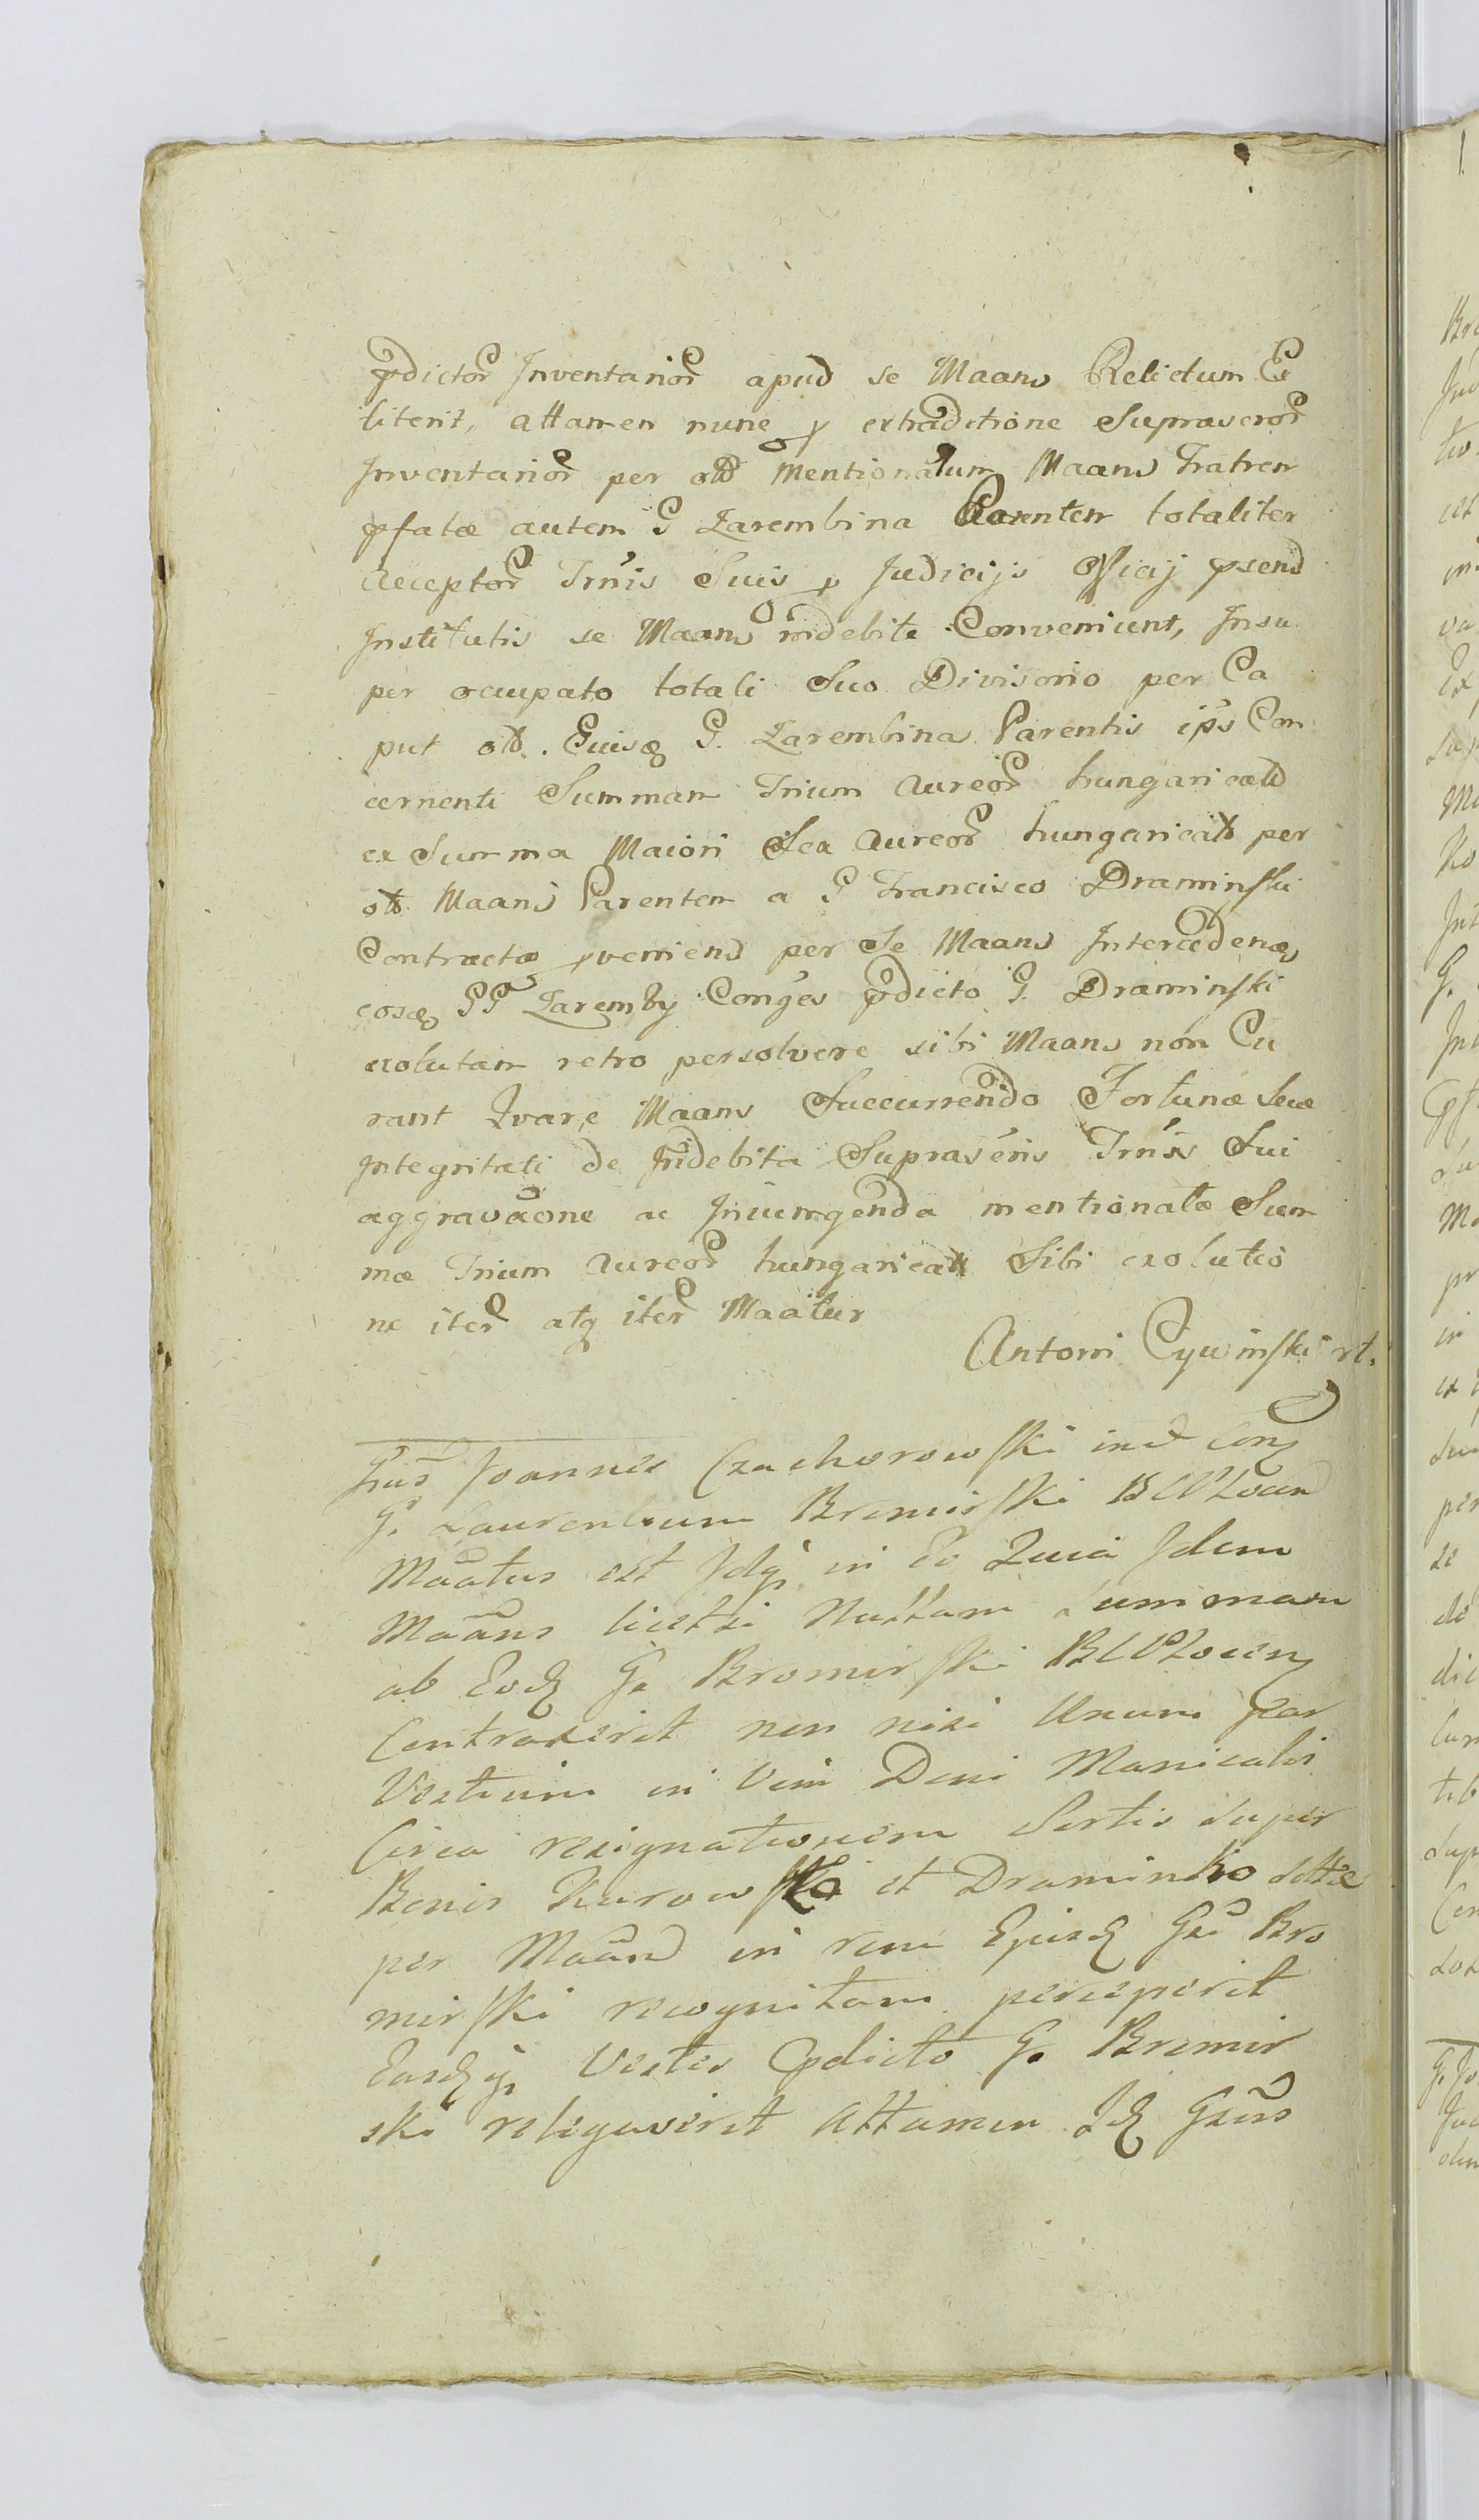 prdictor Inventarior apud se Maans Relictum Ex
titerit, attamen nunc p extraditione Suprascror
Inventarior per olb Mentionatum Maans Fratrem
pfatæ autem G Zarembina Parentem totaliter
acceptor Trnis Suis p Judicijs Officij psend
Institutis se Maans indebite Conveniunt, Insu
per ocupato totali Suo Divisorio per Ca
put olb. Euisq G. Zarembina Parentis ips Con
cernenti Summam Trium Aureor hungaricalb
ex Summa Maiori Sex Aureor hungaricalb per
olb. Maans Parentem a G Francisco Draminski
Contractæ pveniend per Se Maans Intercedenq
eosq GG Zaremby Conges prdicto G. Draminski
exolutam retro persolvere sibi Maans non Cu
rant Quare Maans Succurrendo Fortunæ Suæ
Integritati de Indebita Suprascris Trnis Sui
aggravaone ac Iniungenda mentionatæ Sum
mæ Trium Aureor hungaricalb Sibi exolutio
ne iter atq iter Maatur
Antoni Cywinski rt.
Gus Joannes Czachorowski ind Conq
G. Laurentium Bromirski BCPlocen
Maatus est Idq in Eo Quia Idem
Maans licet si Nullam Summam
ab Eodq G. Bromirski BCPlocen
Contraxerit non nisi Unum par
Vestium in Vim Doni Manicalis
Circa resignationem Sortis super
Bonis Kurowsko et Draminko dttæ
per Maans in rem Ejusdq Gsi Bro
mirski recognitam perceperit
Easdq Vestes Prdicto G. Bromir
ski relegaverit Attamen Idq Gnus